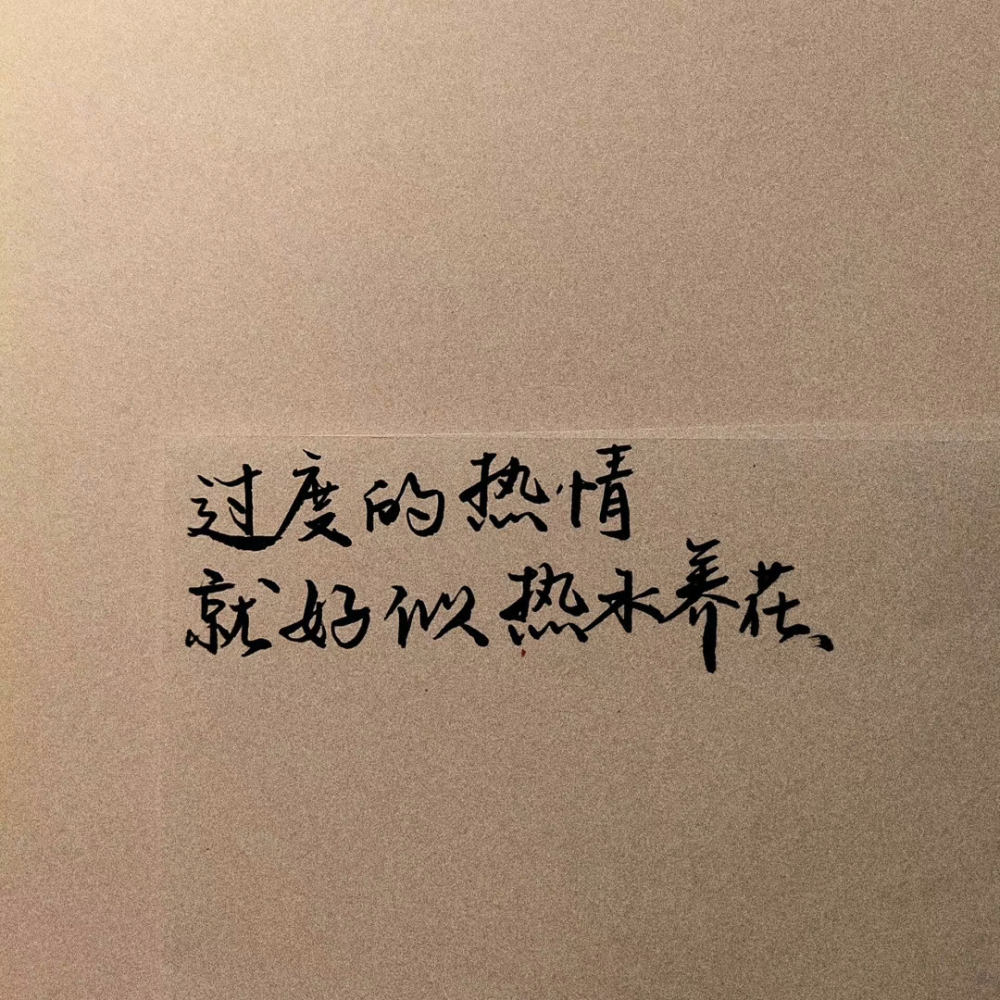 过度的热情
就好似热水养花、